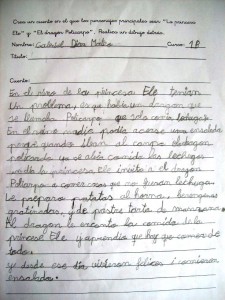 Crea un cuento en el que los personajes principales sean "La princesa
Ele" y "El dragón Policarpo". Realiza un dibujo detrás.
Nombre: Gabriel Díaz Curso: 1º B
Título:
Cuento:
En el reino de la princesa Ele tenían
un problema, es que había un dragon que
se llamaba Policarpo que solo comía lechugas.
En el reino nadie podía acerse una ensalada
porque cuando iban al campo el dragon
policarpo ya se abía comido las lechugas
un día la princesa Ele invito a el dragon
Policarpo a comer cosas que no fueran lechugas.
Le preparo patatas al horno, berenjenas
gratinadas, y de postre tarta de manzana.
Al dragon le encanto la comida de la
princesa Ele y aprendio que hay que comer de
todo.
y desde ese día vivieron felices i comieron
ensalada.